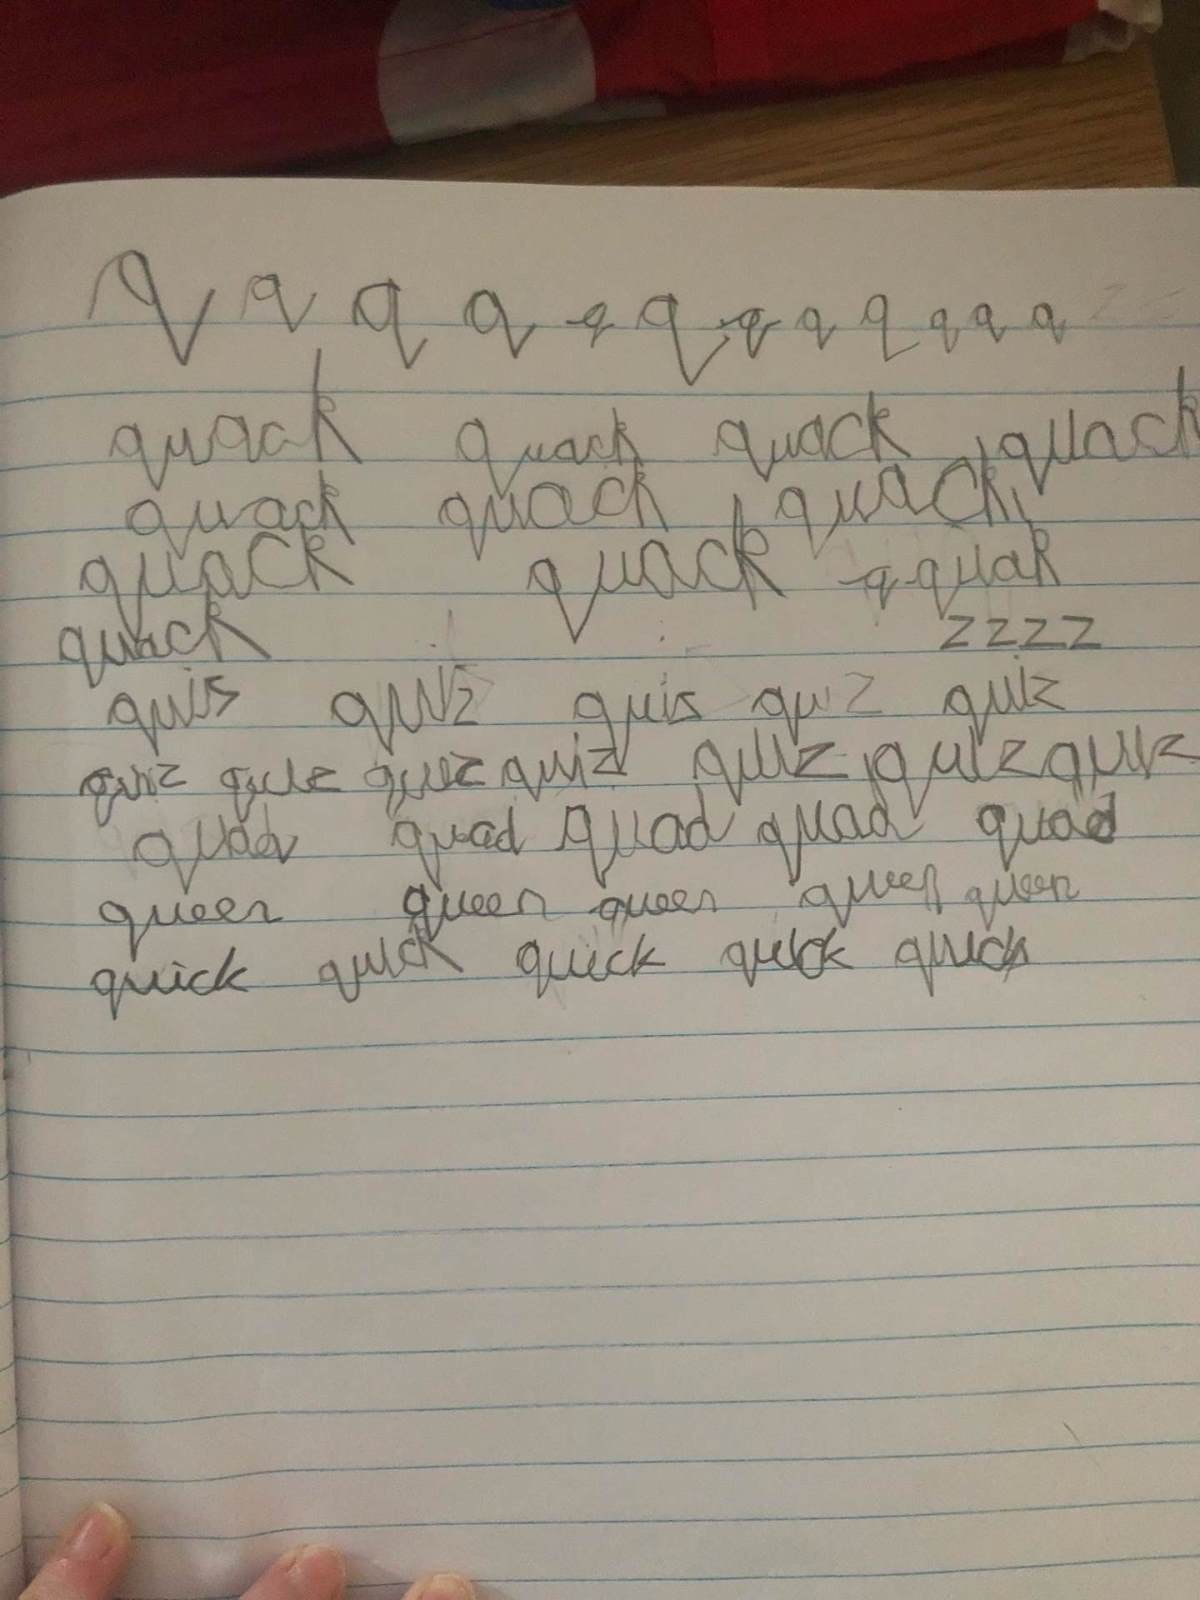 q q q q q q q q q q q q
quack quack quack quack
quack quack quack
quack quack q quak
quack zzzz
quis quiz quis quiz quiz
quiz quiz quiz quiz quiz quiz quiz
quad quad quad quad quad
queen queen queen queen queen
quick quick quick quick quick